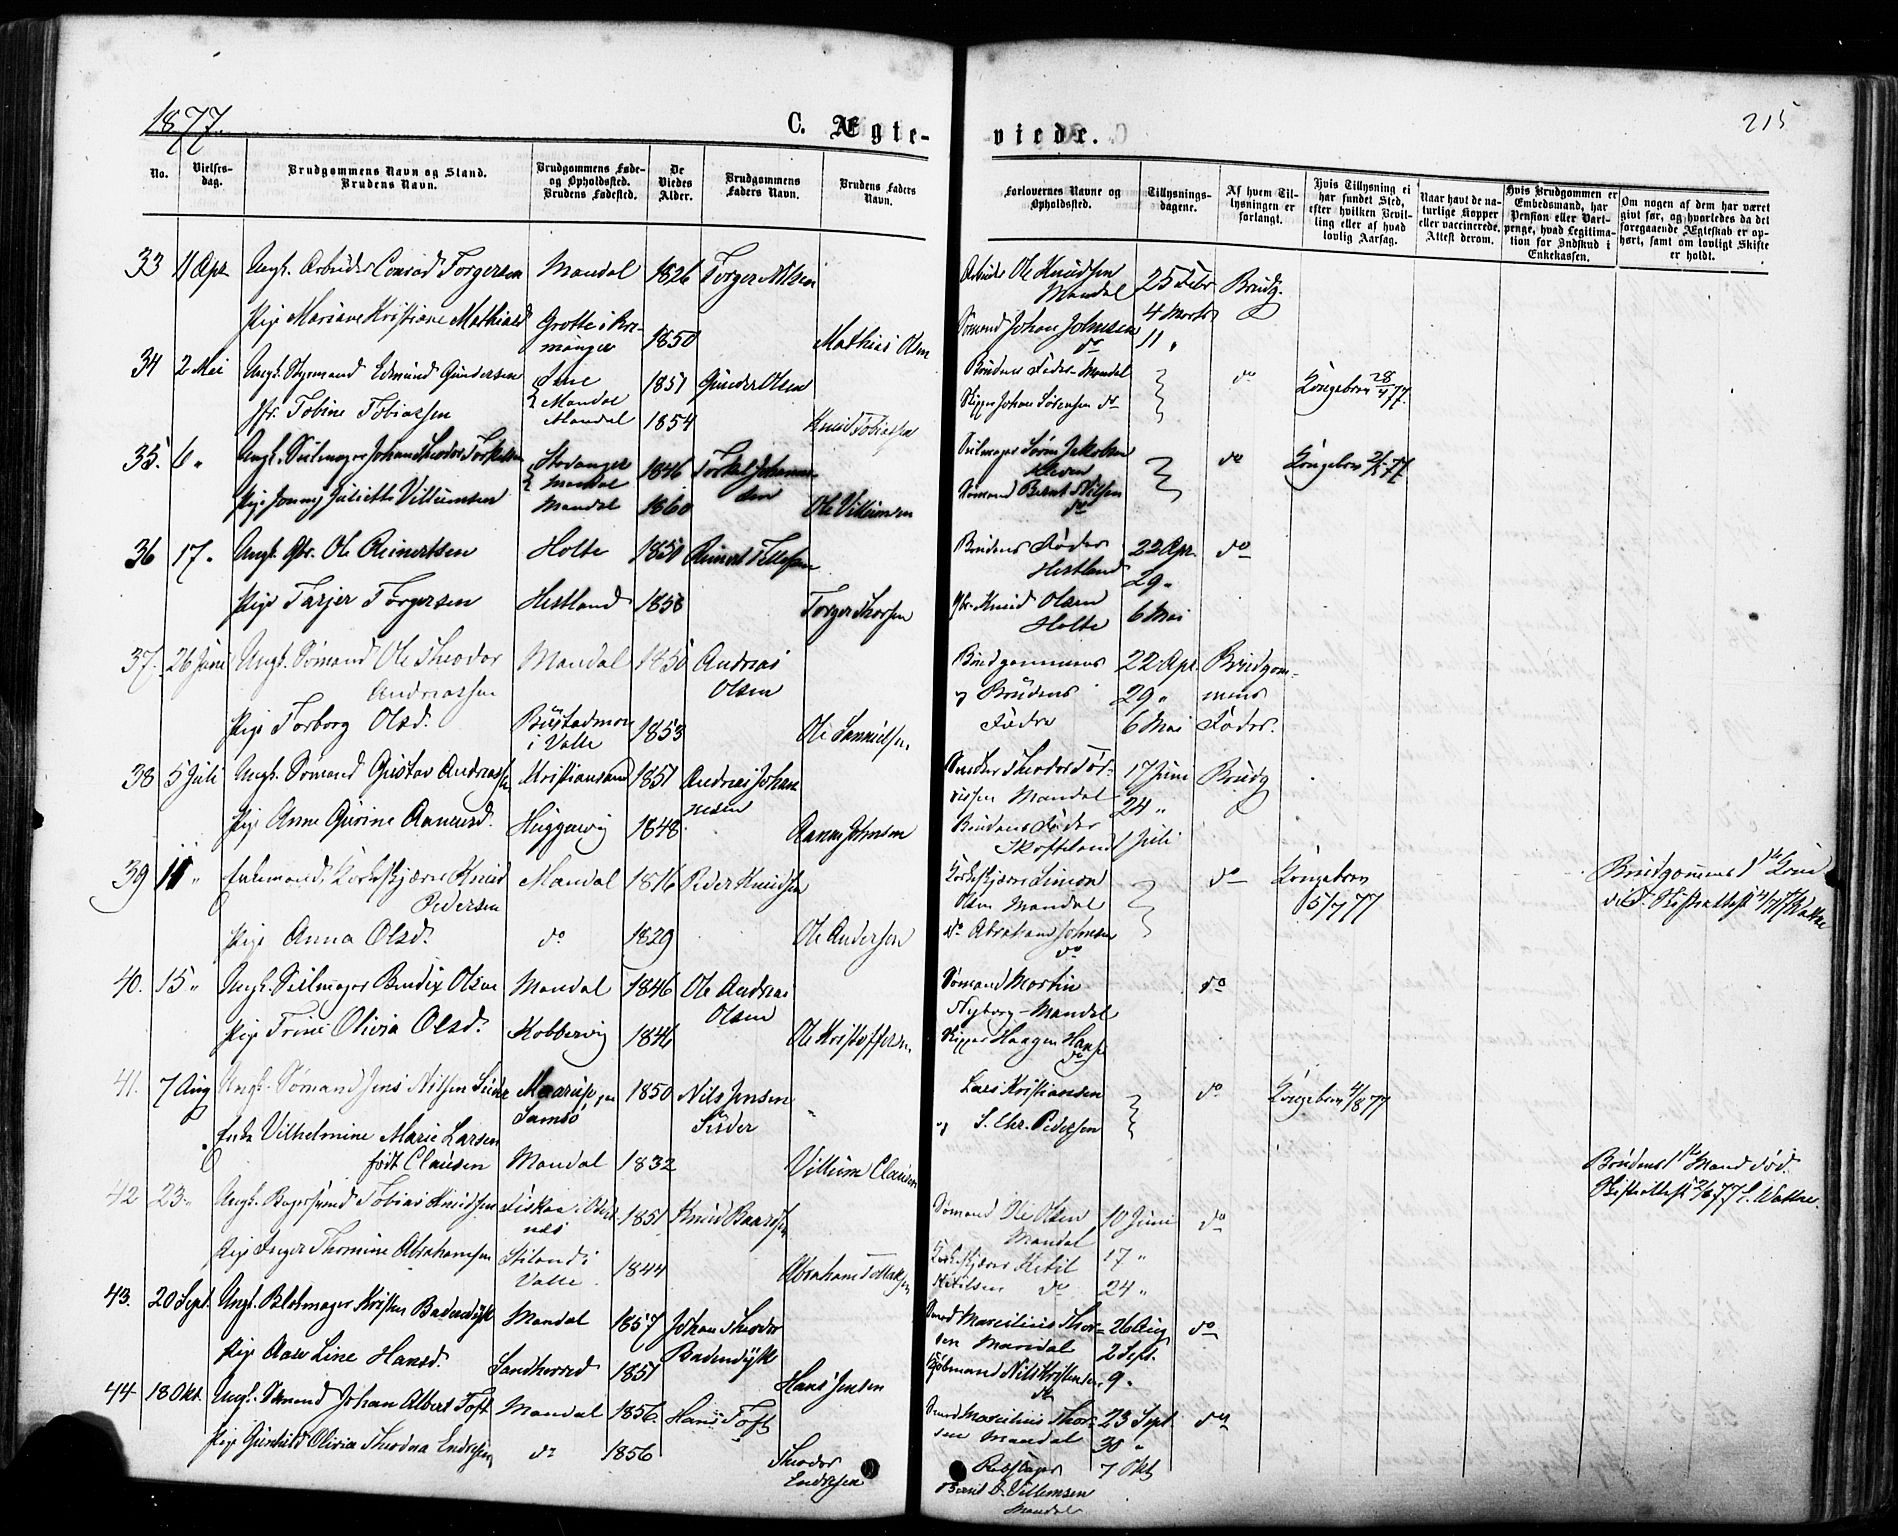 1877.
C. Ægte-
viede.
215
No.
Vielses-
dag.
Brudgommens Navn og Stand.
Brudens Navn.
Brudgommens Føde-
og Opholdssted.
Brudens Fødested.
De
Viedes
Alder.
Brudgommens
Faders Navn.
Brudens Faders
Navn.
Forlovernes Navne og
Opholdssted.
Tillysnings-
dagene.
Af hvem Til-
lysningen er
forlangt.
Hvis Tillysning ei
har fundet Sted,
efter hvilken Bevil-
ling eller af hvad
lovlig Aarsag.
Naar havt de na-
turlige Kopper
eller vaccinerede.
Attest derom.
Hvis Brudgommen er
Embedsmand, har
Pension eller Vart-
penge, hvad Legitima-
tion for Indskud i
Enkekassen.
Om nogen af dem har været
givt før, og hvorledes da det
foregaaende Ægteskab er op-
hørt, samt om lovligt Skifte
er holdt.
33 11 Apr. Ungk. Arbeider Conrad Torgersen Mandal 1826 Torger Nilsen
Arbeider Ole Knudsen Mandal 25 Febr Brudg.
Pige Mariane Kristiane Mathiasd 1850 Mathias Olsen
Sømand Johan Johnsen do 4 Marts 11 "
34 2 Mai Ungk. Styrmand Edmund Gundersen Mandal 1851 Gunder Olsen
Brudens Fader - Mandal do Kongebrev 28/4 77.
Jfr. Tobine Tobiassen Mandal 1854 Knud Tobiassen
Skipper Johan Sørensen do
35. 6 " Ungk. Seilmager Johan Theodor Torkelsen Stavanger Mandal 1846 Torkel Johannesen
Seilmager Søren Jakobsen Kleven do Kongebrev 2/5 77
Pige Jenny Juliette Villumsen Mandal 1860 Ole Villumsen
Sømand Bernt Nilsen do
36 17. Ungk. Gbr. Ole Reinertsen Holte 1850 Reinert Tellefsen
Brudens Fader Hestland 22 Apr. do
29 "
Pige Tarjer Torgersen Hestland 1858 Torger Thorsen
Gbr. Knud Olsen Holte 6 Mai
37. 26 Juni Ungk. Sømand Ole Theodor Andreassen Mandal 1850 Andreas Olsen
Brudgommens og Brudens Fædre 22 Apr. 29 " 6 Mai Brudgommens Fader.
Pige Torborg Olsd. i Valle 1853 Ole Samuelsen
38 5 Juli Ungk. Sømand Gustav Andreassen Kristiansand 1851 Andreas Johannesen
Snedker Theodor Mandal 17 Juni 24 " Brudg
Pige Anne Gurine Aanensd. 1848. Aanen Johnsen
Brudens Fader 1 Juli
39 11 " Enkemand Knud Pedersen Mandal 1816 Peder Knudsen
Simon Olsen Mandal do Kongebrev 5/7 77
Brudgommens 1ste Kone død.
Pige Anna Olsd. do 1829 Ole Andersen
do Abraham Johnsen do
40. 15 " Ungk. Seilmager Bendix Olsen Mandal 1846 Ole Andreas Olsen
Sømand Martin Nyborg - Mandal do
Pige Trine Olivia Olsd. Kobbervig 1846 Ole Kristoffersen
Skipper Haagen do
41. 7 Aug Ungk. Sømand Jens Nilsen Samsø 1850 Nils Jensen
Lars Kristiansen do Kongebrev 4/8 77
Enke Vilhelmine Marie Larsen født Clausen Mandal 1832 Villum Clausen
og S. Chr. Pedersen
Brudens 1ste Mand død.
42 23 " Ungk. Tobias Knudsen 1851 Knud
Sømand Ole Olsen Mandal 10 Juni do
Pige Inger Thomine Abrahamsen i Valle 1844 Abraham
Ketil Ketilsen do 17 " 24 "
43. 20 Sept. Ungk. Blokmager Kristen Badendyk Mandal 1857 Johan Theodor Badendyk
Marcelius Thorsen Mandal 26 Aug. 2 Sept. do
Pige Aase Line Hansd. Sandherred 1851 Hans Jensen
Kjøbmand Nils Kristensen do 9 "
44 18 Okt. Ungk. Sømand Johan Albert Toft Mandal 1856 Hans Toft
Marcelius Thorsen Mandal 23 Sept 30 " do
Pige Gunhild Olivia Theodora Endresen do 1856 Theodor Endresen
Rebslager Bernt O. Villumsen Mandal 7 Okt